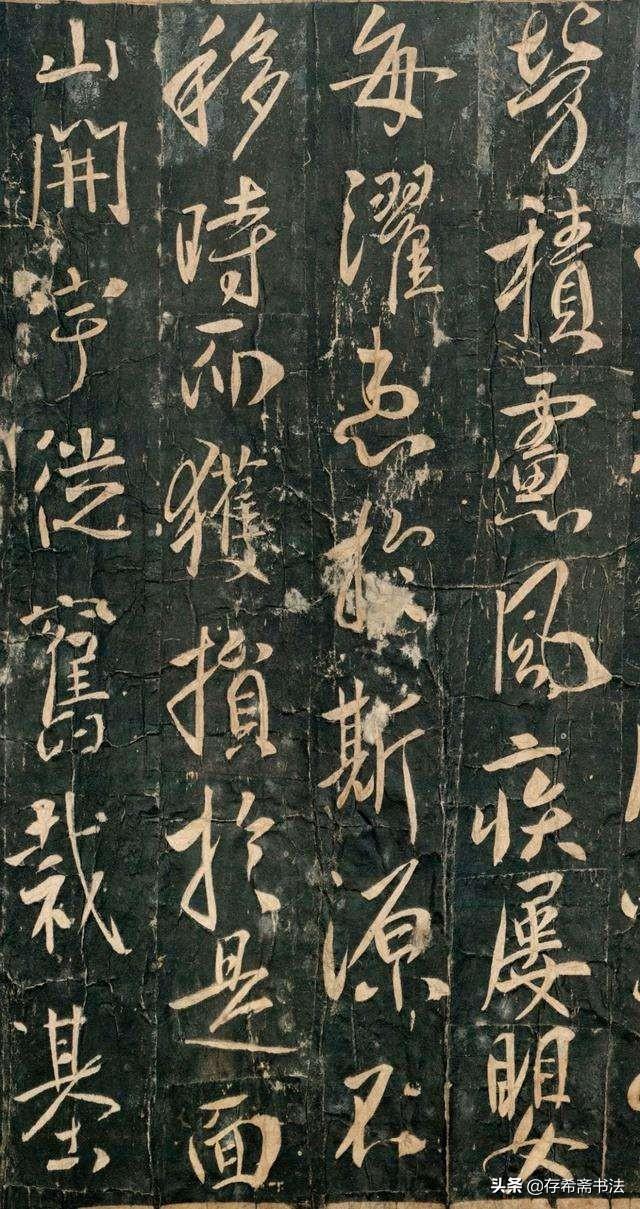 勞積慮風疾屢嬰
每濯患於斯源不
移時而獲損於是面
山開宇從舊裁基
头条 @存希斋书法